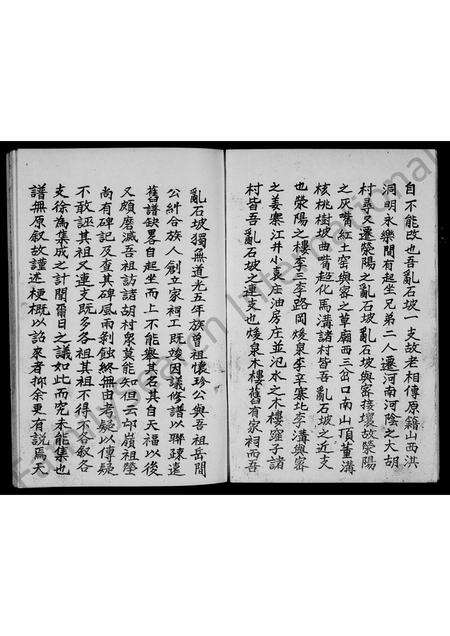 自不能改也吾亂石坡一支故老相傳原籍山西洪
洞明永樂間有起坐兄弟二人遷河南河陰之大胡
村㝷又遷滎陽之亂石坡亂石坡與密接壤故滎陽
之灰嘴紅土窑與密之草廟西三岔口南山頂董溝
核桃樹坡曲嘴超化馬溝諸村皆吾亂石坡之近支
也滎陽之樓李三李路岡燰泉李辛寨北李溝與密
之姜寨江井小袁庄油房庄並汜水之木樓窪子諸
村皆吾亂石坡之遠支也燰泉木樓舊有家祠而吾
亂石坡獨無道光五年族曾祖懷珍公與吾祖岳間
公糾合族人創立家祠工既竣因議修譜以聯疎遠
舊譜缺畧自起坐而上不能舉其名其自天福以後
又頗磨滅吾祖訪諸胡村衆莫能知但云邙嶺祖塋
尚有碑記及查其碑風雨剥蝕終無由考疑以傳疑
不敢誣其祖又遠支既多各祖其祖不得不各叙各
支徐為集成之計間爾日之議如此而究未能集也
譜無原叙故謹述梗概以詒來者抑余更有説焉天